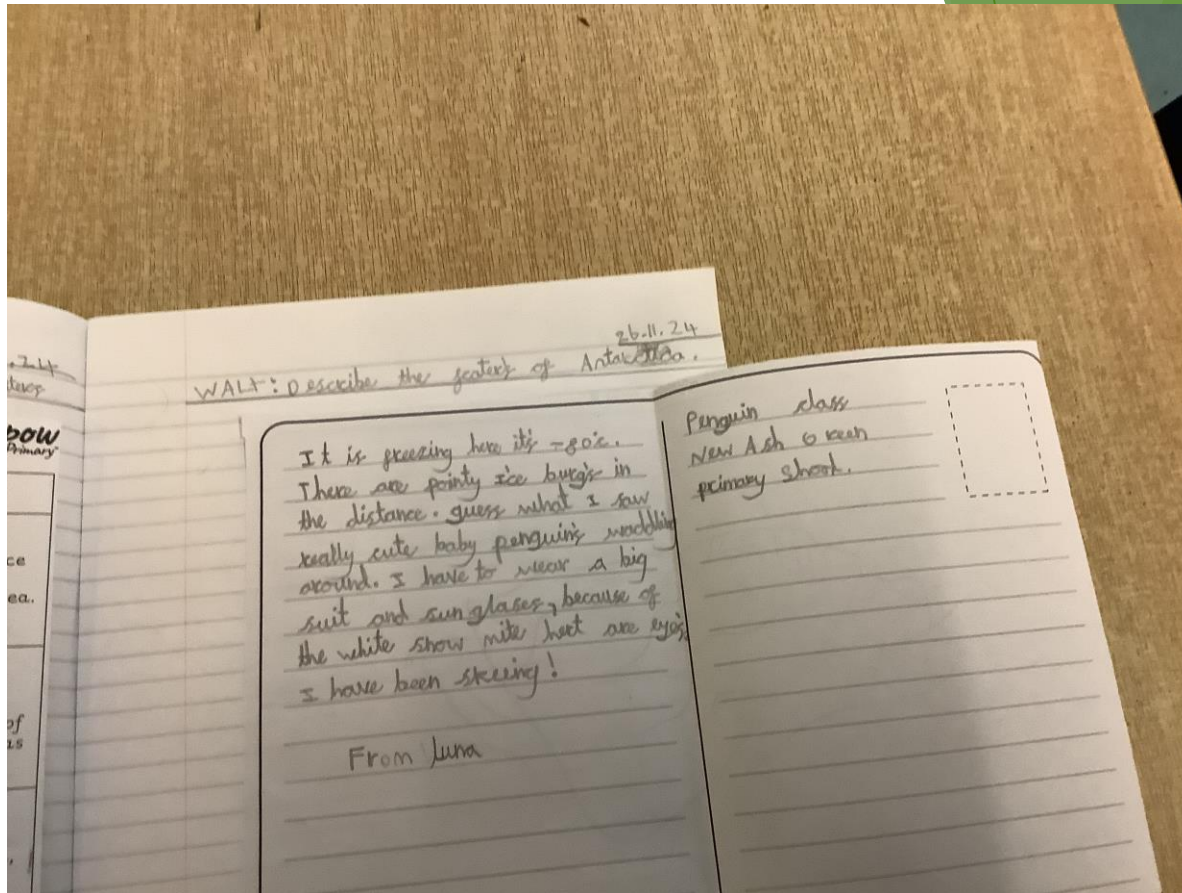 .24
bow
Primary
ce
ea.
of
as
26.11.24
WALT: Describe the featers of Antarctica.
It is freezing here it's -80°c.
There are pointy ice burg's in
the distance. guess what I saw
really cute baby penguin's waddling
around. I have to wear a big
suit and sun glases, because of
the white snow mite hert are eye's
I have been skeeing!
From Luna
Penguin class
New Ash Green
primary Shool.